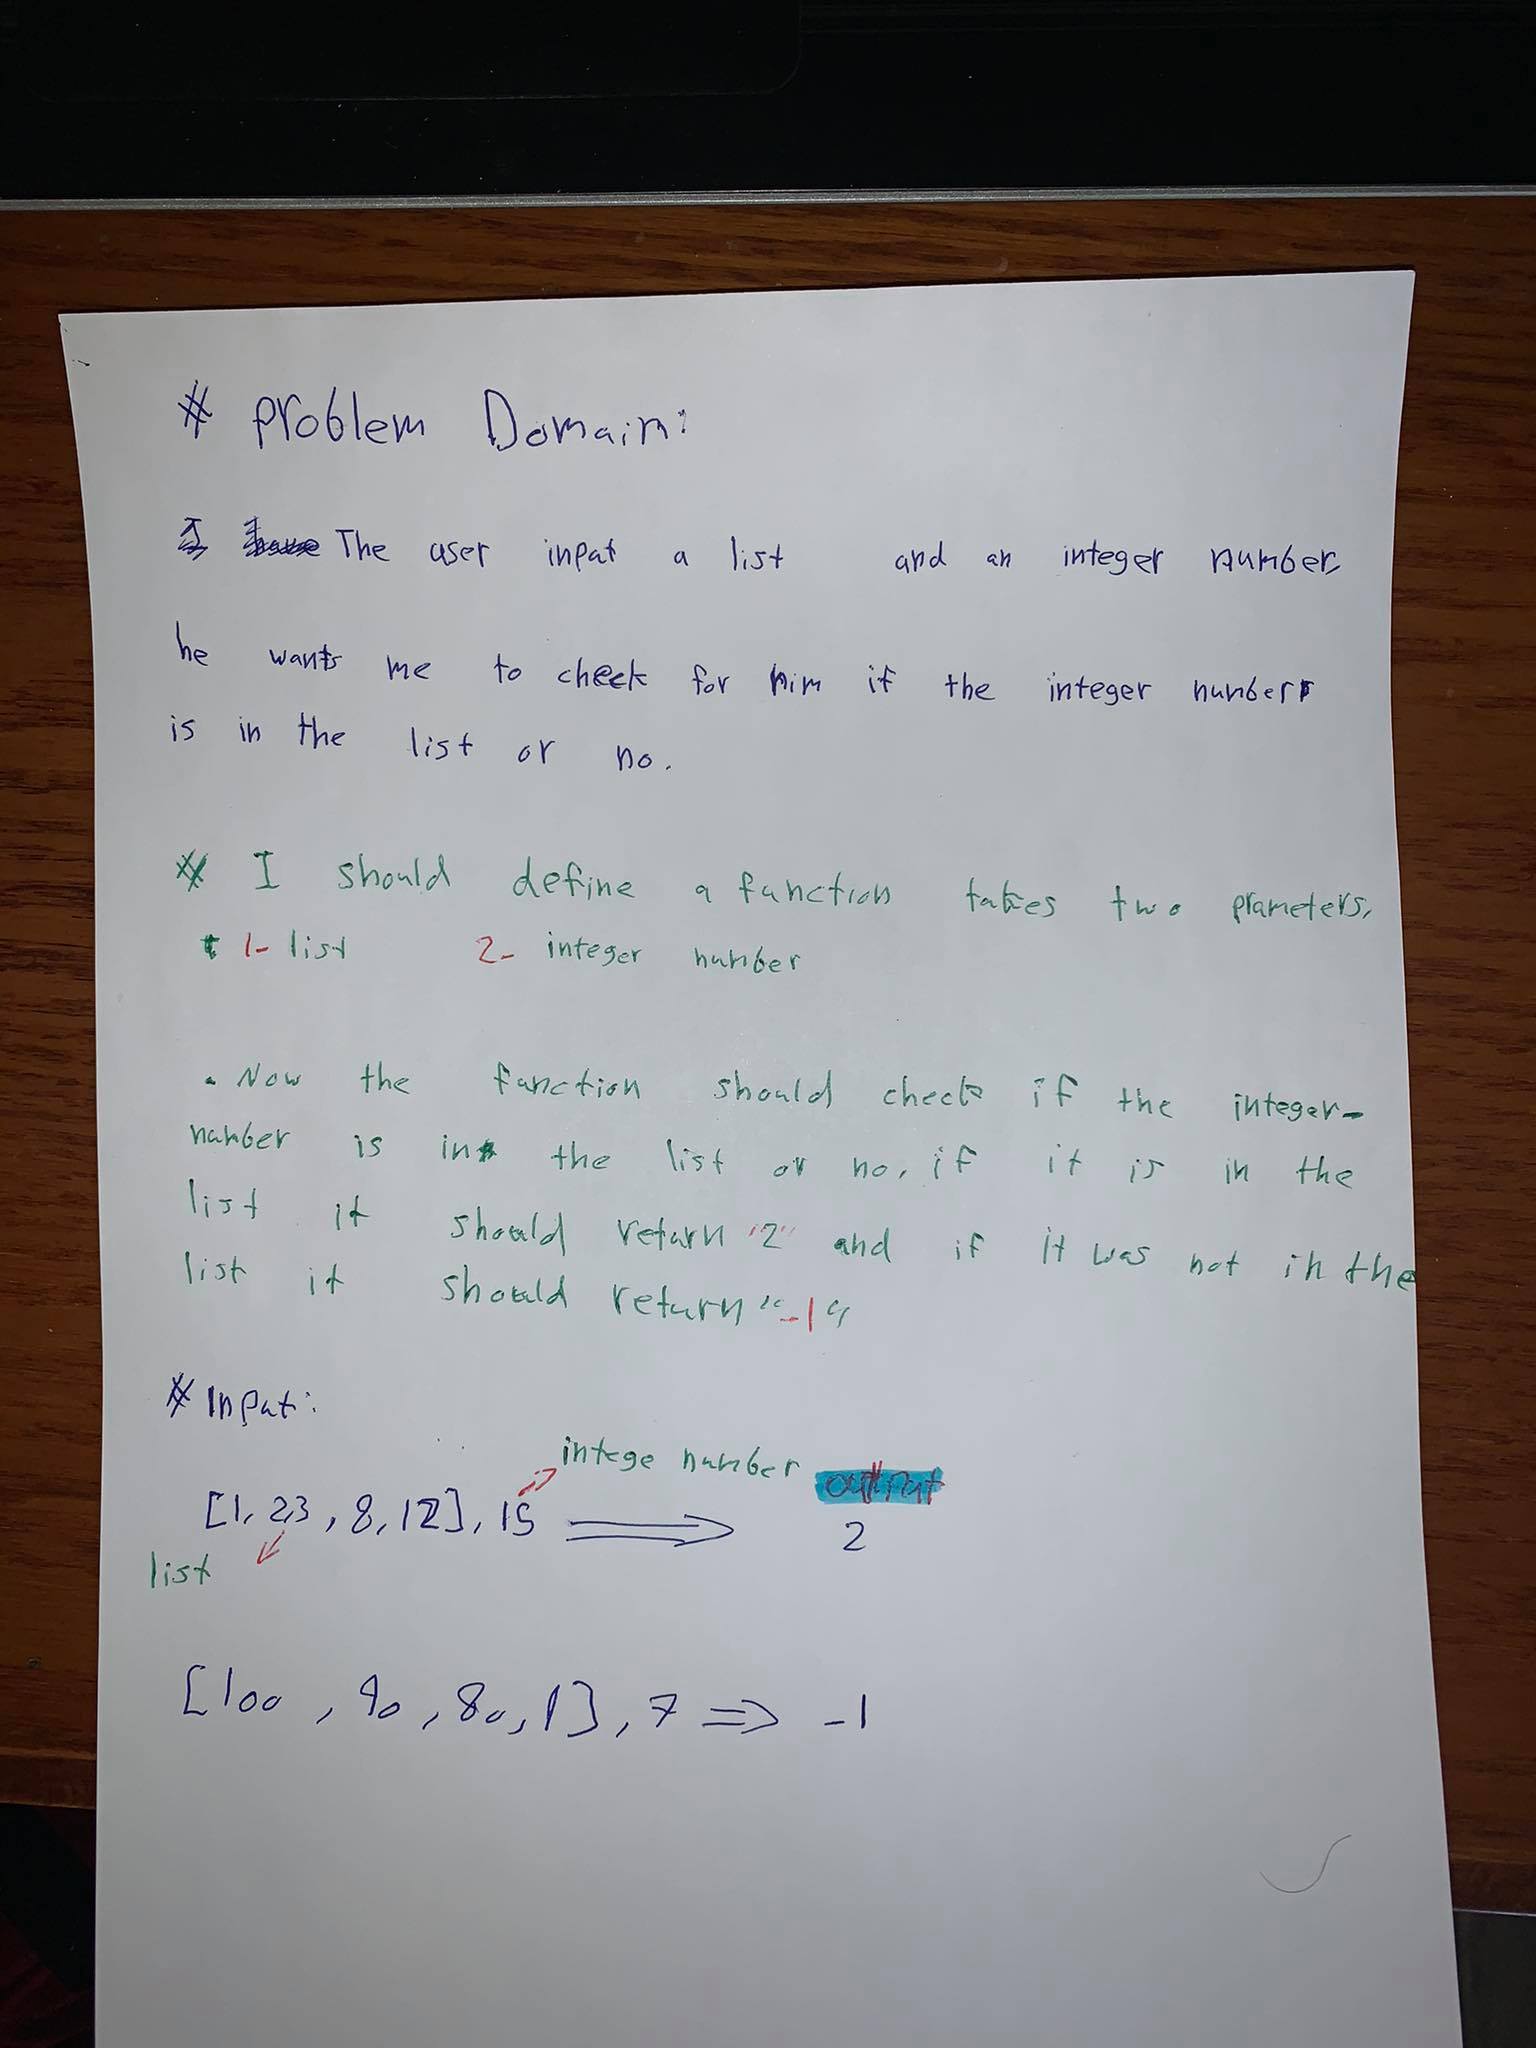 # Problem Domain:
The user input a list and an integer number,
he wants me to check for him if the integer number
is in the list or no.
# I should define a function takes two prameters,
1- list 2- integer number
. Now the function should check if the integer-
number is in the list or no, if it is in the
list it should return "2" and if it was not in the
list it should return "-1"
# Input:
intege number output
[1, 23, 8, 12], 15 ⟹ 2
list
[100, 90, 80, 1], 7 ⟹ -1